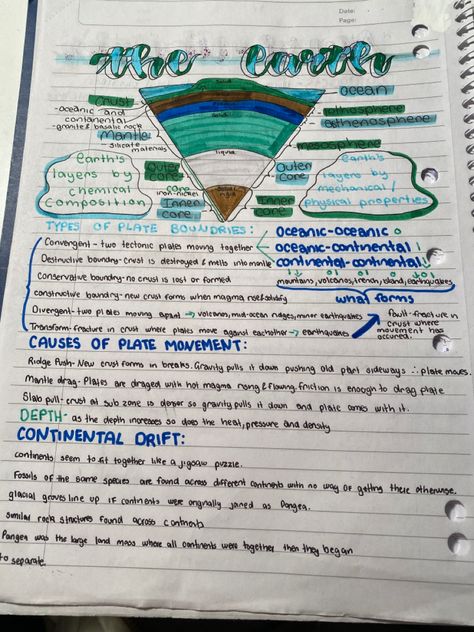 Date:
Page:
the earth
Solid
crust
ocean
-oceanic and
continental
-granite & basalic rock
lithosphere
asthenosphere
Solid
mantle
-silicate
materials
mesosphere
liquid
earth's
layers by
chemical
composition
outer
core
iron-nickel
core
inner
core
Solid
outer
core
inner
core
earth's
layers by
mechanical/
physical properties
TYPES OF PLATE BOUNDRIES:
oceanic-oceanic
Convergent - two tectonic plates moving together
oceanic-continental
Destructive boundry- crust is destroyed & melts into mantle
continental-continental
Conservative boundry- no crust is lost or formed
mountains, volcanos, trench, island, earthquakes
constructive boundry- new crust forms when magma rises & solidify
what forms
Divergent- two plates moving apart → volcanos, mid-ocean ridges, minor earthquakes
fault-fracture in
crust where
movement has
occured.
Transform- fracture in crust where plates move against eachother → earthquakes
CAUSES OF PLATE MOVEMENT:
Ridge Push- New crust forms in breaks. Gravity pulls it down pushing old part sideways ∴ plate moves.
Mantle drag- Plates are draged with hot magma rising & flowing. friction is enough to drag plate
Slab pull- crust at sub zone is denser so gravity pulls it down and plate comes with it.
DEPTH- as the depth increases so does the heat, pressure and density
CONTINENTAL DRIFT:
continents seem to fit together like a jigsaw puzzle.
Fossils of the same species are found across different continents with no way of getting there otherwise.
glacial groves line up if continents were originally joined as Pangea.
similar rock structures found across continents
Pangea was the large land mass where all continents were together then they began
to separate.